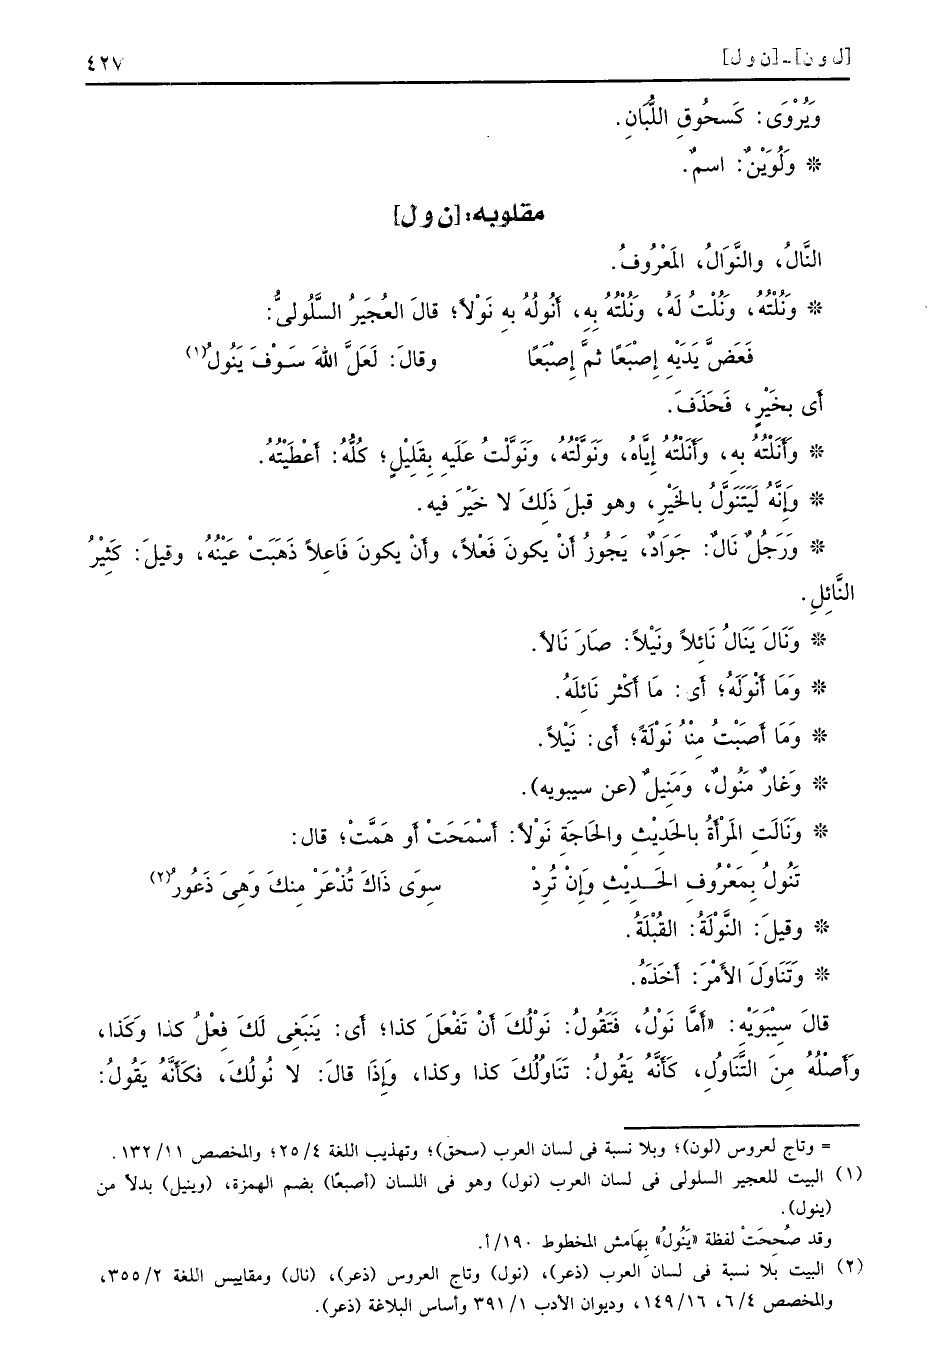 [ل و ن] - [ن و ل] ٤٢٧
وَيُرْوَى: كَسحُوقِ اللُّبَانِ.
* ولُوَيْنٌ: اسمٌ.
مقلوبه: [ن و ل]
النَّالُ، والنَّوَالُ، المَعْرُوفُ.
* ونُلْتُهُ، ونُلْتُ لَهُ، ونُلْتُهُ بِهِ، أَنُولُهُ بِهِ نَوْلاً؛ قالَ العُجَيرُ السَّلُولىُّ:
فَعَضَّ يَدَيْهِ إصْبَعًا ثمَّ إصْبَعًا وقالَ: لَعَلَّ اللهَ سَـوْفَ يَنُولُ(١)
أى بخَيْرٍ، فَحَذَفَ.
* وأَنَلْتُهُ بِهِ، وأَنَلْتُهُ إيَّاهُ، ونَوَّلْتُهُ، ونَوَّلْتُ عَلَيهِ بِقَلِيْلٍ؛ كلُّهُ: أعْطَيْتُهُ.
* وإنَّهُ لَيَتَنَوَّلُ بالخَيْرِ، وهو قبلَ ذَلِكَ لا خَيْرَ فيه.
* ورَجُلٌ نَالٌ: جَوَادٌ، يَجُوزُ أنْ يكونَ فَعْلاً، وأنْ يكونَ فَاعِلاً ذَهَبَتْ عَيْنُهُ، وقيلَ: كَثِيْرُ
النَّائِلِ.
* ونَالَ يَنَالُ نَائِلاً ونَيْلاً: صَارَ نَالاً.
* ومَا أَنْوَلَهُ؛ أى: مَا أكْثر نَائِلَهُ.
* ومَا أصَبْتُ مِنْهُ نَوْلَةً؛ أى: نَيْلاً.
* وغَارٌ مَنُولٌ، ومَنِيلٌ (عن سيبويه).
* ونَالَتِ المَرْأةُ بالحَدِيْثِ والحَاجَةِ نَوْلاً: أسْمَحَتْ أو هَمَّتْ؛ قال:
تَنُولُ بِمَعْرُوفِ الحَـدِيْثِ وإنْ تُرِدْ سِوَى ذَاكَ تُذْعَرْ مِنكَ وَهىَ ذَعُورُ(٢)
* وقيلَ: النَّوْلَةُ: القُبْلَةُ.
* وتَنَاوَلَ الأمْرَ: أخَذَهُ.
قالَ سِيْبَوَيْهِ: «أمَّا نَوْلُ، فَتَقُولُ: نَوْلُكَ أنْ تَفْعَلَ كذا؛ أى: يَنبَغِى لَكَ فِعْلُ كذا وكَذا،
وأَصْلُهُ مِنَ التَّنَاوُلِ، كَأنَّهُ يَقُولُ: تَنَاوُلُكَ كذا وكذا، وإذَا قالَ: لا نُولُكَ، فكَأنَّهُ يَقُولُ:
= وتاج لعروس (لون)؛ وبلا نسبة فى لسان العرب (سحق)؛ وتهذيب اللغة ٢٥/٤؛ والمخصص ١٣٢/١١.
(١) البيت للعجير السلولى فى لسان العرب (نول) وهو فى اللسان (أصبعًا) بضم الهمزة، (وينيل) بدلاً من
(ينول).
وقد صُححَتْ لفظة «يَنُولُ» بِهَامش المخطوط ١٩٠/أ.
(٢) البيت بلا نسبة فى لسان العرب (ذعر)، (نول) وتاج العروس (ذعر)، (نال) ومقاييس اللغة ٣٥٥/٢،
والمخصص ٦/٤، ١٤٩/١٦، وديوان الأدب ٣٩١/١ وأساس البلاغة (ذعر).